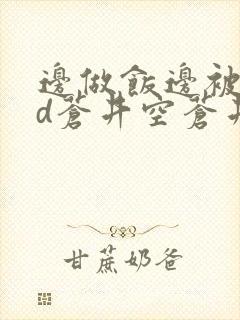 邊做飯邊被
d蒼井空蒼井
甘蔗奶爸